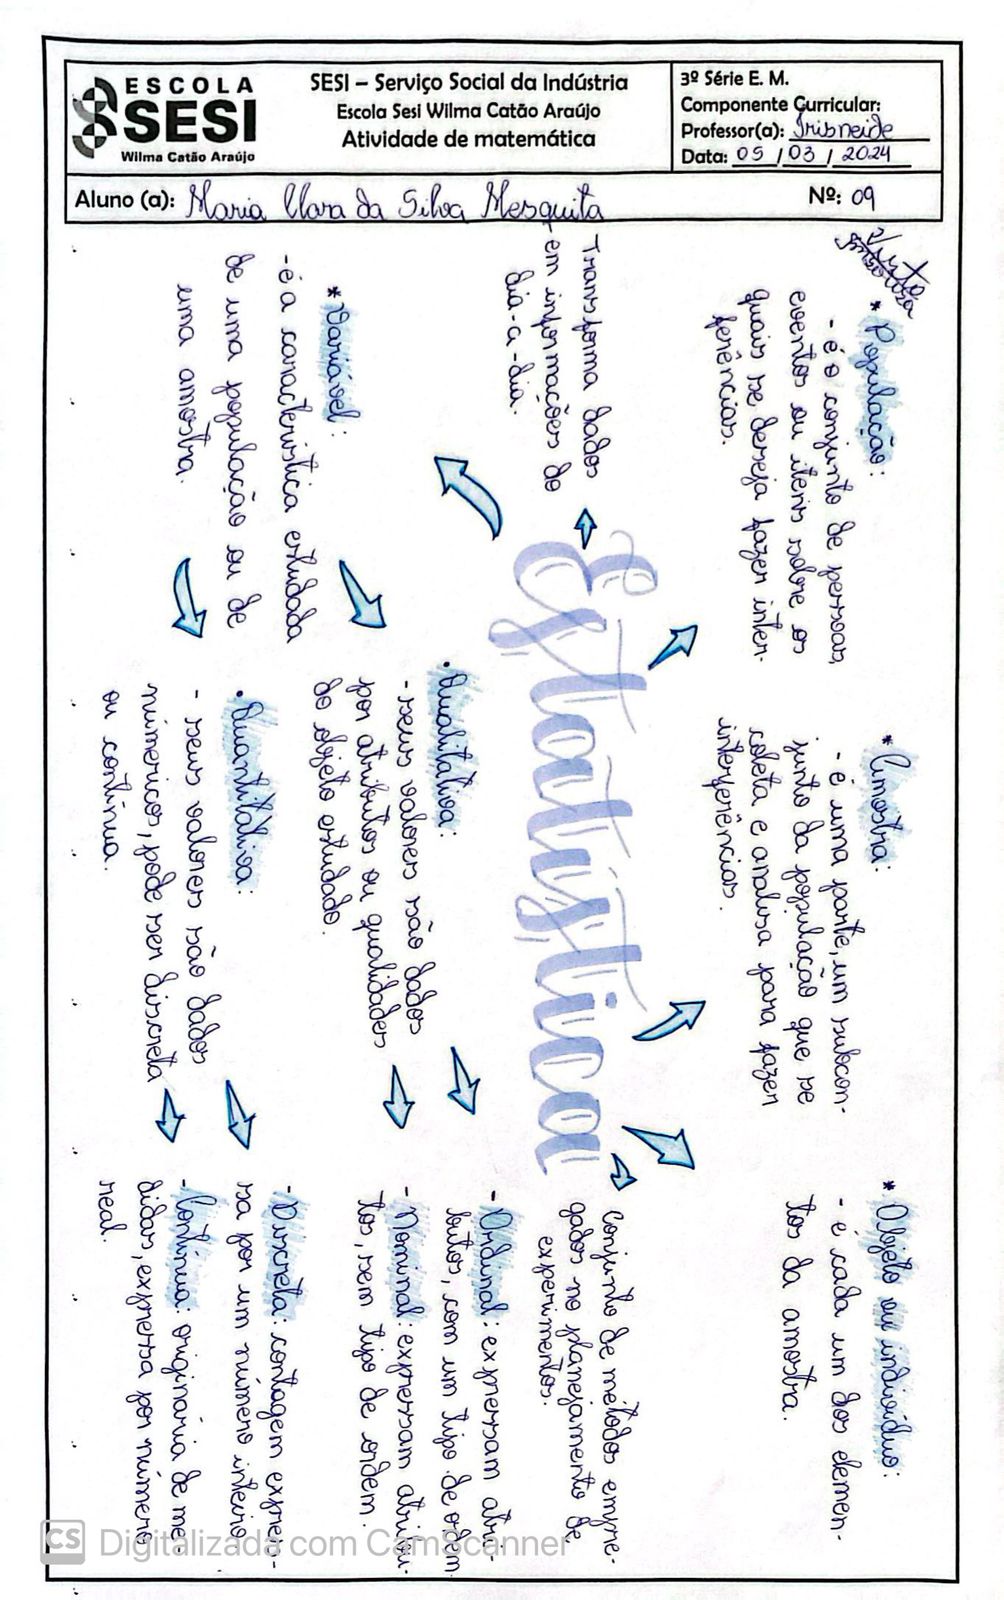 ESCOLA
SESI
Wilma Catão Araújo
SESI – Serviço Social da Indústria
Escola Sesi Wilma Catão Araújo
Atividade de matemática
3º Série E. M.
Componente Curricular:
Professor(a): Irisneide
Data: 05 / 03 / 2024
Aluno (a): Maria Clara da Silva Mesquita
Nº: 09
Visto
* População:
- é o conjunto de pessoas,
eventos ou itens sobre os
quais se deseja fazer inter-
ferências.
* Amostra:
- é uma parte, um subcon-
junto da população que se
coleta e analisa para fazer
interferências.
* Objeto ou indivíduo:
- é cada um dos elemen-
tos da amostra.
Transforma dados
em informações do
dia-a-dia.
Estatística
Conjunto de métodos empre-
gados no planejamento de
experimentos.
* Variável:
- é a característica estudada
de uma população ou de
uma amostra.
• Qualitativa:
- seus valores são dados
por atributos ou qualidades
do objeto estudado.
- Ordinal: expressam atri-
butos, com um tipo de ordem.
- Nominal: expressam atribu-
tos, sem tipo de ordem.
• Quantitativa:
- seus valores são dados
númericos, pode ser discreta
ou contínua.
- Discreta: contagem expres-
sa por um número inteiro
- Contínua: originária de me-
didas, expressa por número
real.
CS Digitalizada com CamScanner